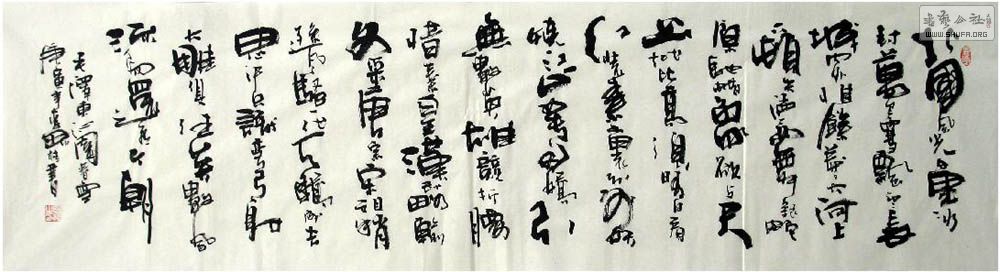 北國風光千里冰
封萬里雪飄望長
城內外惟餘莽莽大河上
頓失滔滔山舞銀蛇
原馳蠟象欲與天
公試比高須晴日看
紅裝素裹分外妖
嬈江山如此多嬌引
無數英雄競折腰
惜秦皇漢武略輸
文采唐宗宋祖稍
遜風騷一代天驕成吉
思汗只識彎弓射
大雕俱往矣數風
流人物還看今朝
毛澤東沁園春雪
庚寅年
书艺公社
WWW.SHUFA.ORG